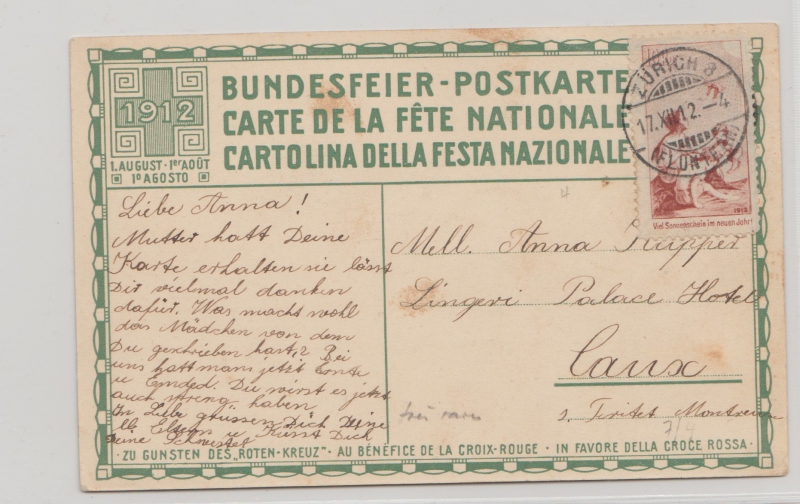 1912
1. AUGUST - 1er AOÛT
1º AGOSTO
BUNDESFEIER-POSTKARTE
CARTE DE LA FÊTE NATIONALE
CARTOLINA DELLA FESTA NAZIONALE
ZÜRICH 8
17.XII.12.
(FLUNTERN)
1912
Viel Sonnenschein im neuen Jahr!
Liebe Anna!
Mutter hatt Deine
Karte erhalten sie lässt
Dir vielmal danken
dafür. Was macht wohl
das Mädchen von dem
Du geschrieben hast? Bei
uns hatt mans jetzt
u Du wirst es jetzt
auch streng haben
In Liebe grüssen Dich Deine
lb Eltern u Küsst Dich
Deine Schwester
Mell. Anna Kupper
Lingeri Palace Hotel
Caux
s. Teritet Montreux
4
7/4
ZU GUNSTEN DES „ROTEN-KREUZ" · AU BÉNÉFICE DE LA CROIX-ROUGE · IN FAVORE DELLA CROCE ROSSA